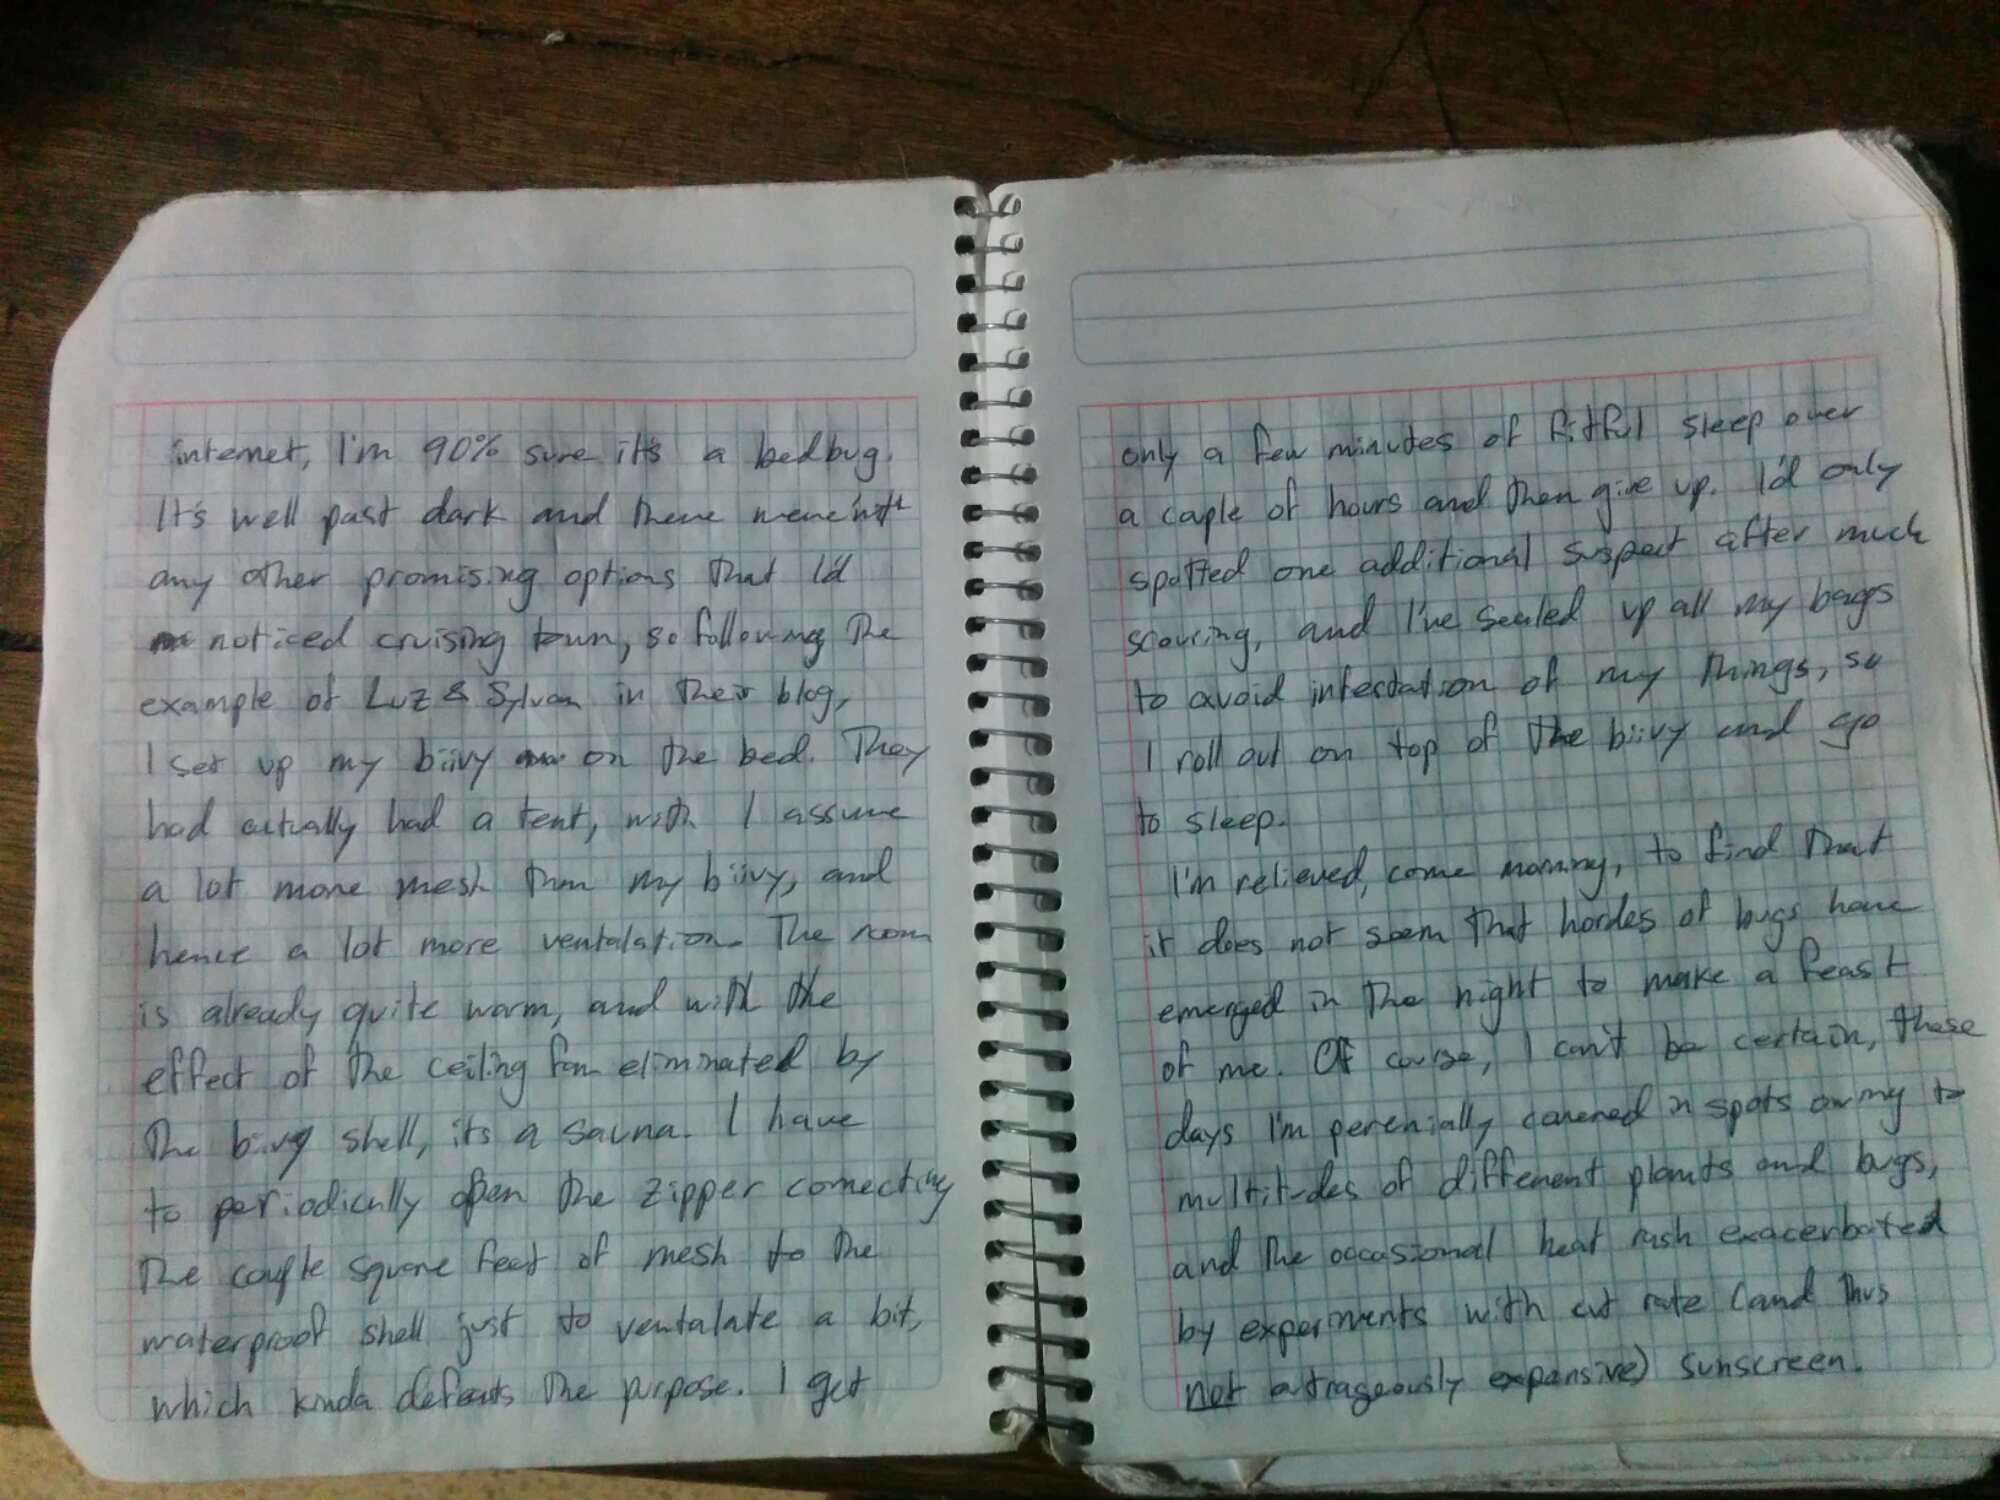 internet, I'm 90% sure it's a bedbug.
It's well past dark and there were'nt
any other promising options that I'd
noticed cruising town, so following the
example of Luz & Sylvan in their blog,
I set up my biivy on the bed. They
had actually had a tent, with I assume
a lot more mesh than my biivy, and
hence a lot more ventalation. The room
is already quite warm, and with the
effect of the ceiling fan eliminated by
the bivy shell, its a sauna. I have
to periodically open the zipper connecting
the couple square feet of mesh to the
waterproof shell just to ventalate a bit,
which kinda defeats the purpose. I get
only a few minutes of fitful sleep over
a caple of hours and then give up. I'd only
spotted one additional suspect after much
scouring, and I've sealed up all my bags
to avoid infestation of my things, so
I roll out on top of the biivy and go
to sleep.
I'm relieved, come morning, to find that
it does not seem that hordes of bugs have
emerged in the night to make a feast
of me. Of course, I can't be certain, these
days I'm perenially covered in spots owing to
multitudes of different plants and bugs,
and the occasional heat rash exacerbated
by experiments with cut rate (and thus
not outrageously expansive) sunscreen.